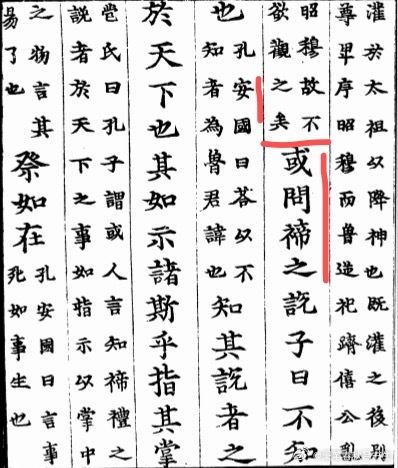 灌於太祖以降神也既灌之後別
尊卑序昭穆而魯逆祀躋僖公亂
昭穆故不
欲觀之矣
或問禘之説子曰不知
也
孔安國曰荅以不
知者為魯君諱也
知其説者之
於天下也其如示諸斯乎指其掌
苞氏曰孔子謂或人言知禘禮之
説者於天下之事如指示以掌中
之物言其
易了也
祭如在
孔安國曰言事
死如事生也